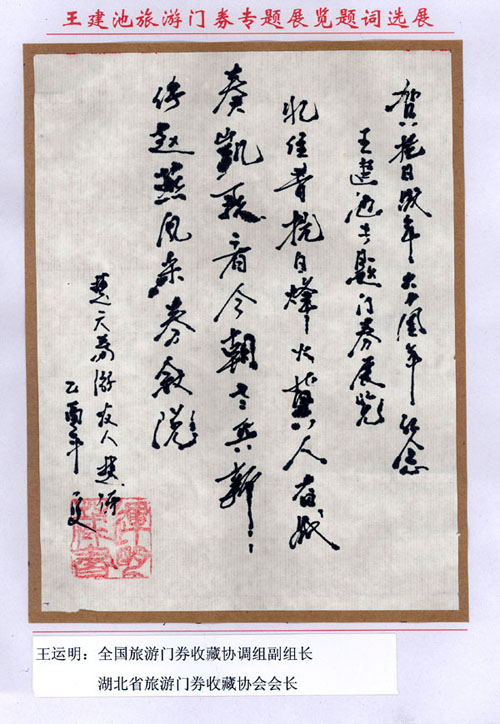 王建池旅游门券专题展览题词选展
贺抗日战争六十周年纪念
王建池专题门券展览
忆往昔抗日烽火冀人奋战
奏凯歌看今朝老兵新
传赵燕风采券
楚天券游友人
乙酉年夏
王运明：全国旅游门券收藏协调组副组长
湖北省旅游门券收藏协会会长